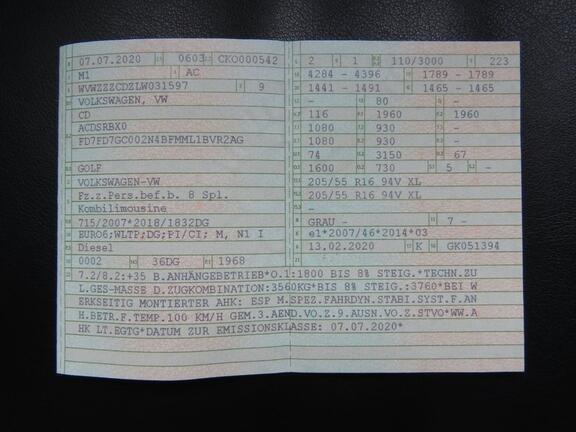 07.07.2020 0603 CKO000542
M1 AC
WVWZZZCDZLW031597 9
VOLKSWAGEN, VW
CD
ACDSRBX0
FD7FD7GC002N4BFMML1BVR2AG
GOLF
VOLKSWAGEN-VW
Fz.z.Pers.bef.b. 8 Spl.
Kombilimousine
715/2007*2018/1832DG
EURO6;WLTP;DG;PI/CI; M, N1 I
Diesel
0002 36DG 1968
2 1 110/3000 223
4284 - 4396 1789 - 1789
1441 - 1491 1465 - 1465
- 80 -
116 1960 1960
1080 930 -
1080 930 -
74 3150 67
1600 730 5 -
205/55 R16 94V XL
205/55 R16 94V XL
-
GRAU - 7 -
e1*2007/46*2014*03
13.02.2020 K GK051394
7.2/8.2:+35 B.ANHÄNGEBETRIEB*O.1:1800 BIS 8% STEIG.*TECHN.ZU
L.GES-MASSE D.ZUGKOMBINATION:3560KG*BIS 8% STEIG.:3760*BEI W
ERKSEITIG MONTIERTER AHK: ESP M.SPEZ.FAHRDYN.STABI.SYST.F.AN
H.BETR.F.TEMP.100 KM/H GEM.3.AEND.VO.Z.9.AUSN.VO.Z.STVO*WW.A
HK LT.EGTG*DATUM ZUR EMISSIONSKLASSE: 07.07.2020*